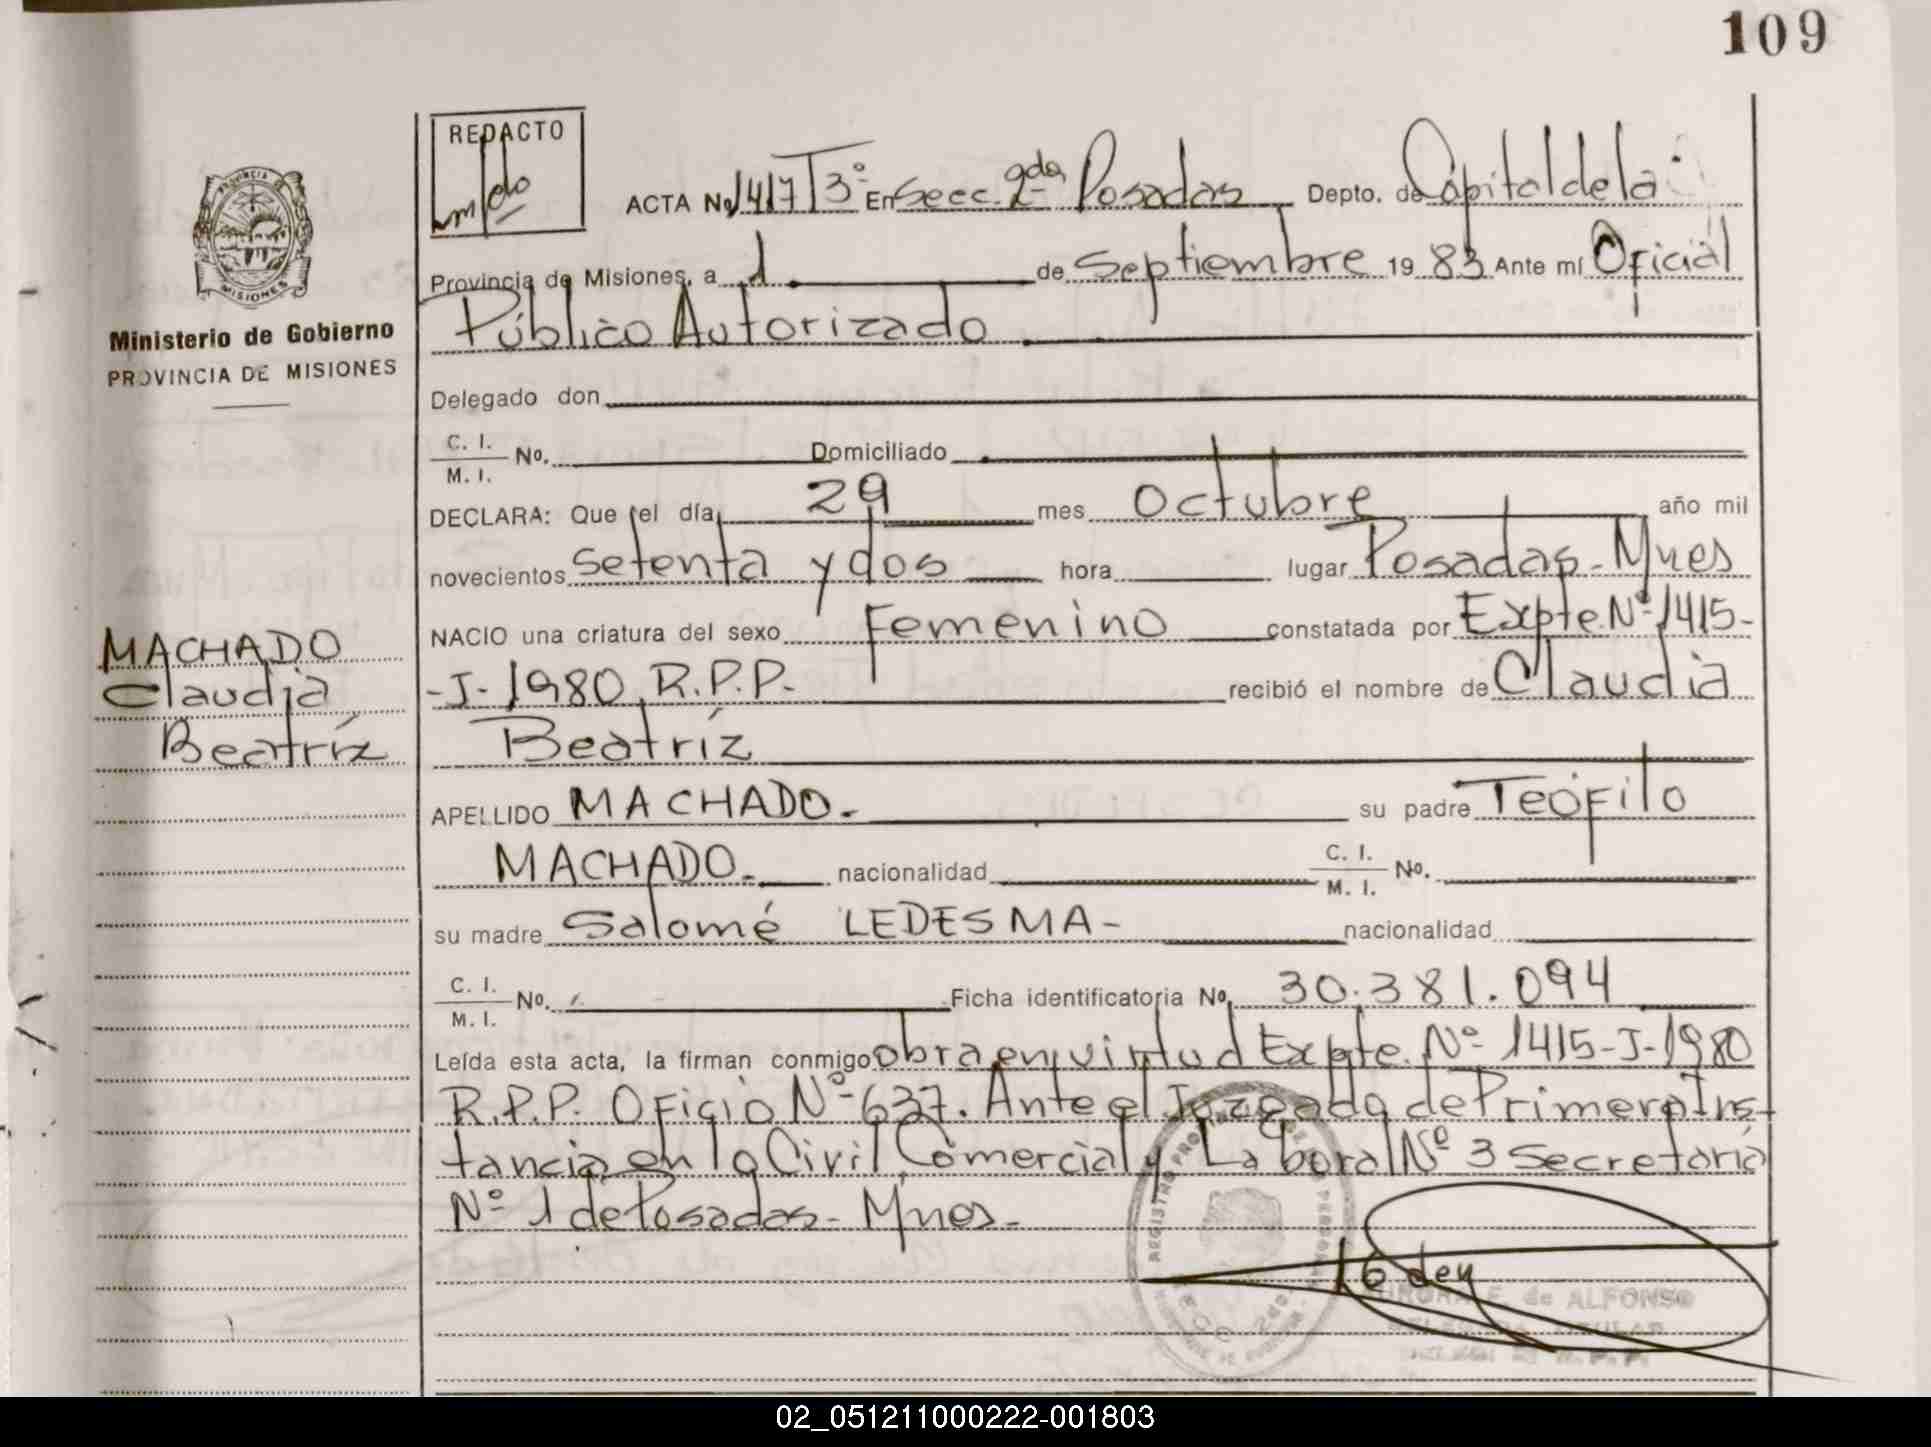 109
REDACTO
ACTA No 1417 T3° En Secc. 2da Posadas Depto. de Capital de la
Provincia de Misiones, a 1 de Septiembre 19 83 Ante mí Oficial
Público Autorizado
PROVINCIA DE
MISIONES
Ministerio de Gobierno
PROVINCIA DE MISIONES
Delegado don
C. I.
M. I. No. Domiciliado
DECLARA: Que el día 29 mes Octubre año mil
novecientos setenta y dos hora lugar Posadas - Mnes
NACIO una criatura del sexo Femenino constatada por Expte. Nº 1415-
-J-1980 R.P.P.- recibió el nombre de Claudia
Beatríz
MACHADO
Claudia
Beatríz
APELLIDO MACHADO.- su padre Teófilo
MACHADO.- nacionalidad C. I.
M. I. No.
su madre Salomé LEDESMA- nacionalidad
C. I.
M. I. No. Ficha identificatoria No. 30.381.094
Leída esta acta, la firman conmigo obra en virtud Expte. Nº 1415-J-1980
R.P.P. Oficio Nº 637. Ante el Juzgado de Primera Ins-
tancia en lo Civil Comercial y Laboral Nº 3 Secretaría
Nº 1 de Posadas - Mnes.-
de ALFONSO
02_051211000222-001803